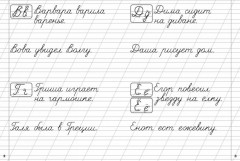 Вв Варвара варила
варенье.
Вова увидел Волгу.
Гг Гриша играет
на гармошке.
Галя была в Греции.
Дд Дима сидит
на диване.
Даша рисует дом.
Ее Егор повесил
Ёё звезду на ёлку.
Енот ест ежевику.